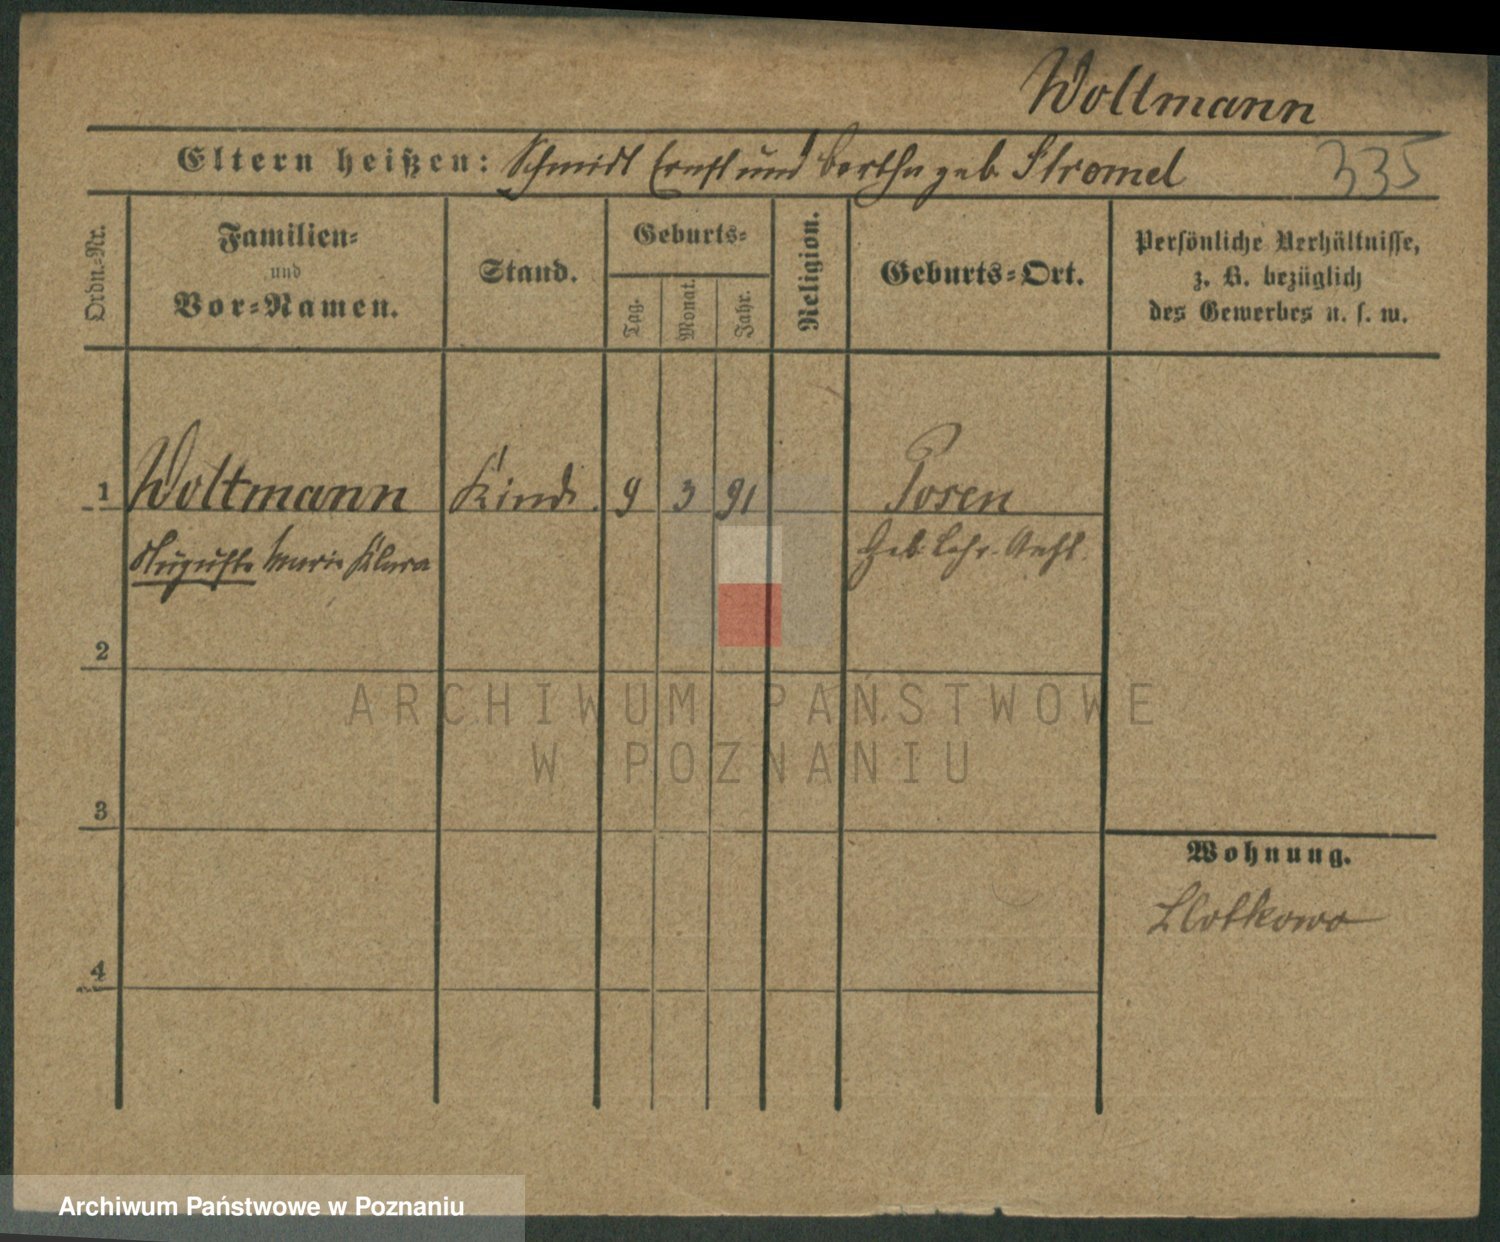 Woltmann
Eltern heißen: Schmidt Ernst und Bertha geb. Stromel
335
Ordn.-Nr.
Familien-
und
Vor-Namen.
Stand.
Geburts-
Tag.
Monat.
Jahr.
Religion.
Geburts-Ort.
Persönliche Verhältnisse,
z. B. bezüglich
des Gewerbes u. s. w.
1 Woltmann Kind. 9 3 91 Posen
Auguste Marie Klara Geb. Lehr-Anst.
2
ARCHIWUM PAŃSTWOWE
W POZNANIU
3
Wohnung.
Zlotkowo
4
Archiwum Państwowe w Poznaniu